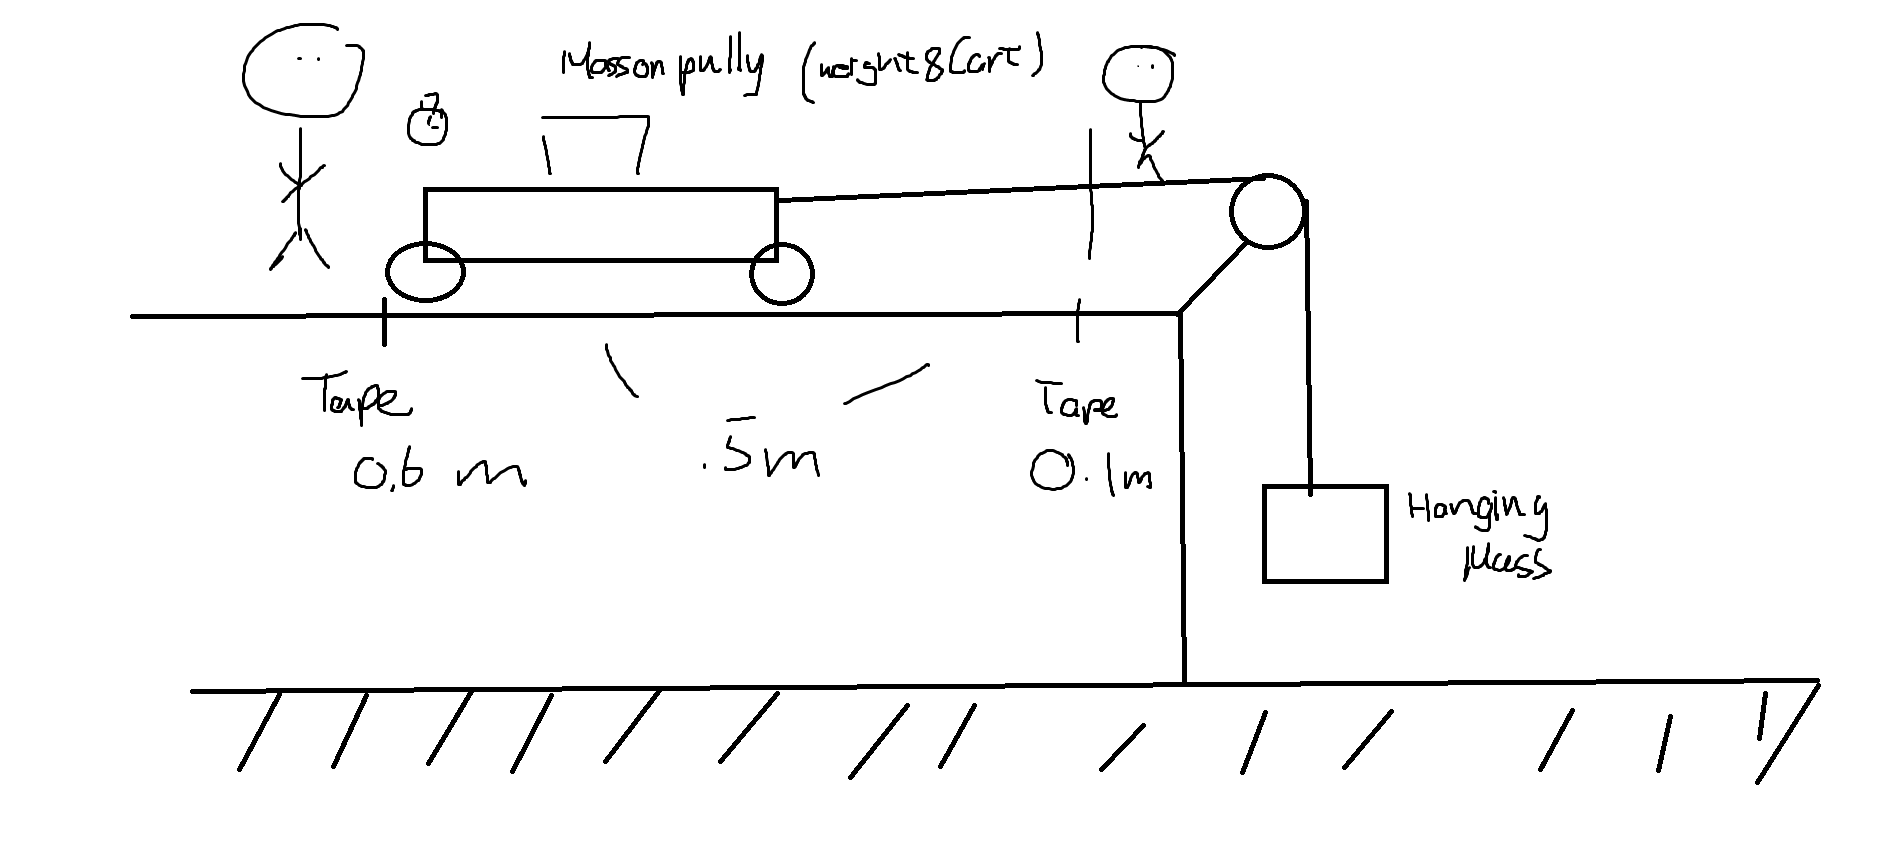 Mass on pully (weight & Cart)
Tape
0.6 m
.5m
Tape
0.1m
Hanging
Mass